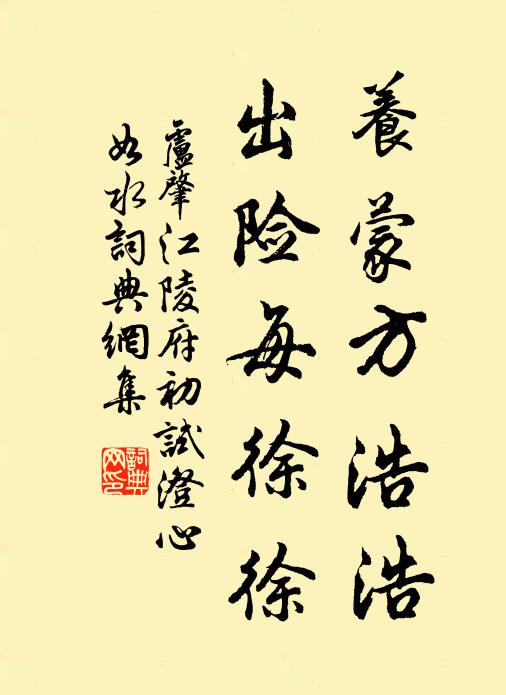 養蒙方浩浩
出险每徐徐
盧肇江陵府初試澄心
如水詞典網集
詞典网印